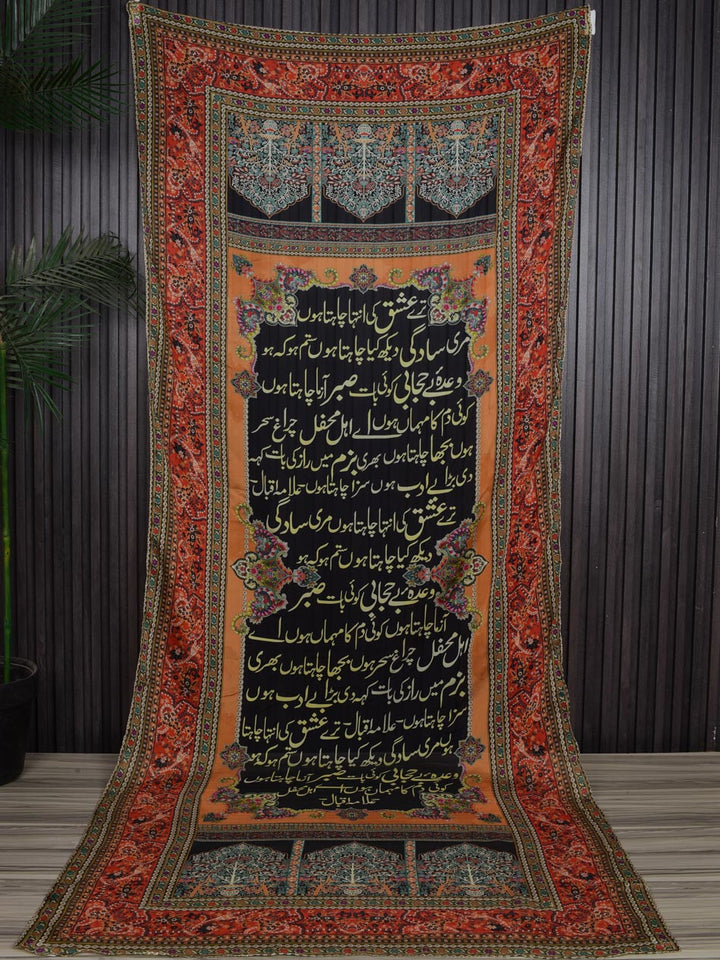 ترے عشق کی انتہا چاہتا ہوں
مری سادگی دیکھ کیا چاہتا ہوں ستم ہو کہ ہو
وعدۂ بے حجابی کوئی بات صبر آزما چاہتا ہوں
کوئی دم کا مہماں ہوں اے اہل محفل چراغ سحر
ہوں بجھا چاہتا ہوں بھری بزم میں راز کی بات کہہ
دی بڑا بے ادب ہوں سزا چاہتا ہوں۔ علامہ اقبال
ترے عشق کی انتہا چاہتا ہوں مری سادگی
دیکھ کیا چاہتا ہوں ستم ہو کہ ہو
وعدۂ بے حجابی کوئی بات صبر
آزما چاہتا ہوں کوئی دم کا مہماں ہوں اے
اہل محفل چراغ سحر ہوں بجھا چاہتا ہوں بھری
بزم میں راز کی بات کہہ دی بڑا بے ادب ہوں
سزا چاہتا ہوں۔ علامہ اقبال۔ ترے عشق کی انتہا چاہتا
مری سادگی دیکھ کیا چاہتا ہوں ستم ہو کہ ہو
وعدۂ بے حجابی کوئی بات صبر آزما چاہتا ہوں
کوئی دم کا مہماں ہوں اے اہل محفل
علامہ اقبال